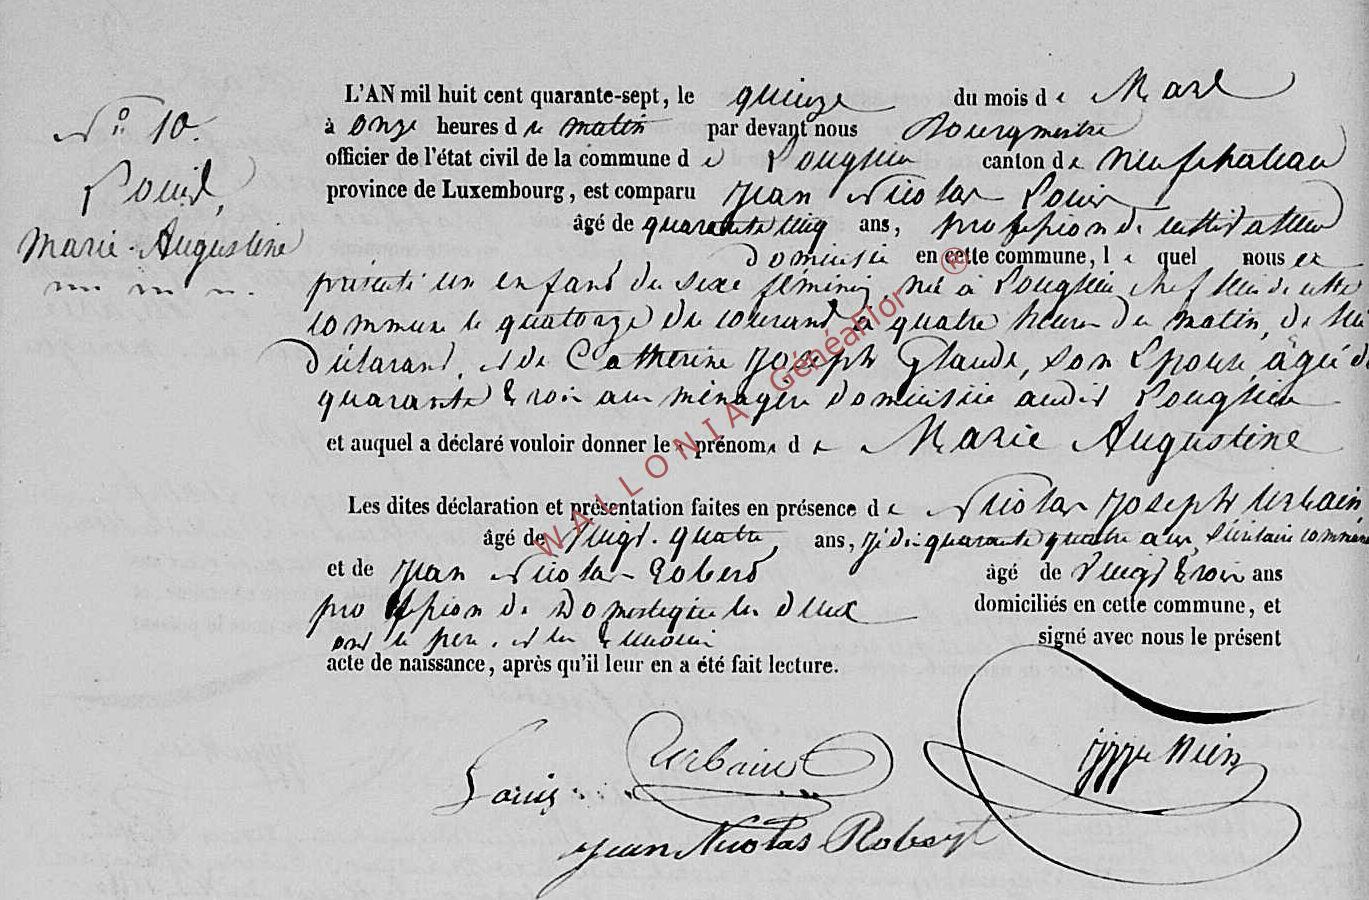 N° 10.
Louis,
Marie-Augustine
L'AN mil huit cent quarante-sept, le quinze du mois de Mars
à onze heures du matin par devant nous Bourgmestre
officier de l'état civil de la commune de Longlier canton de neufchateau
province de Luxembourg, est comparu Jean Nicolas Louis
âgé de quarante cinq ans, profession de cultivateur
domicilié en cette commune, le quel nous a
présenté un enfant du sexe féminin, né à Longlier chef lieu de cette
commune le quatorze du courant à quatre heures du matin, de lui
déclarant, et de Catherine Joseph Glaude, son Epouse âgée de
quarante trois ans ménagère domiciliée audit Longlier
et auquel a déclaré vouloir donner les prénoms de Marie Augustine
Les dites déclaration et présentation faites en présence de Nicolas Joseph Urbain
âgé de vingt-quatre, ans, je dis quarante quatre ans, Sécrétaire commun
et de Jean Nicolas Robert âgé de vingt trois ans
profession de Domestique les deux domiciliés en cette commune, et
ont le père et les témoins signé avec nous le présent
acte de naissance, après qu'il leur en a été fait lecture.
Louis Urbain
Jean Nicolas Robert
WALLONIA Généaflor ®